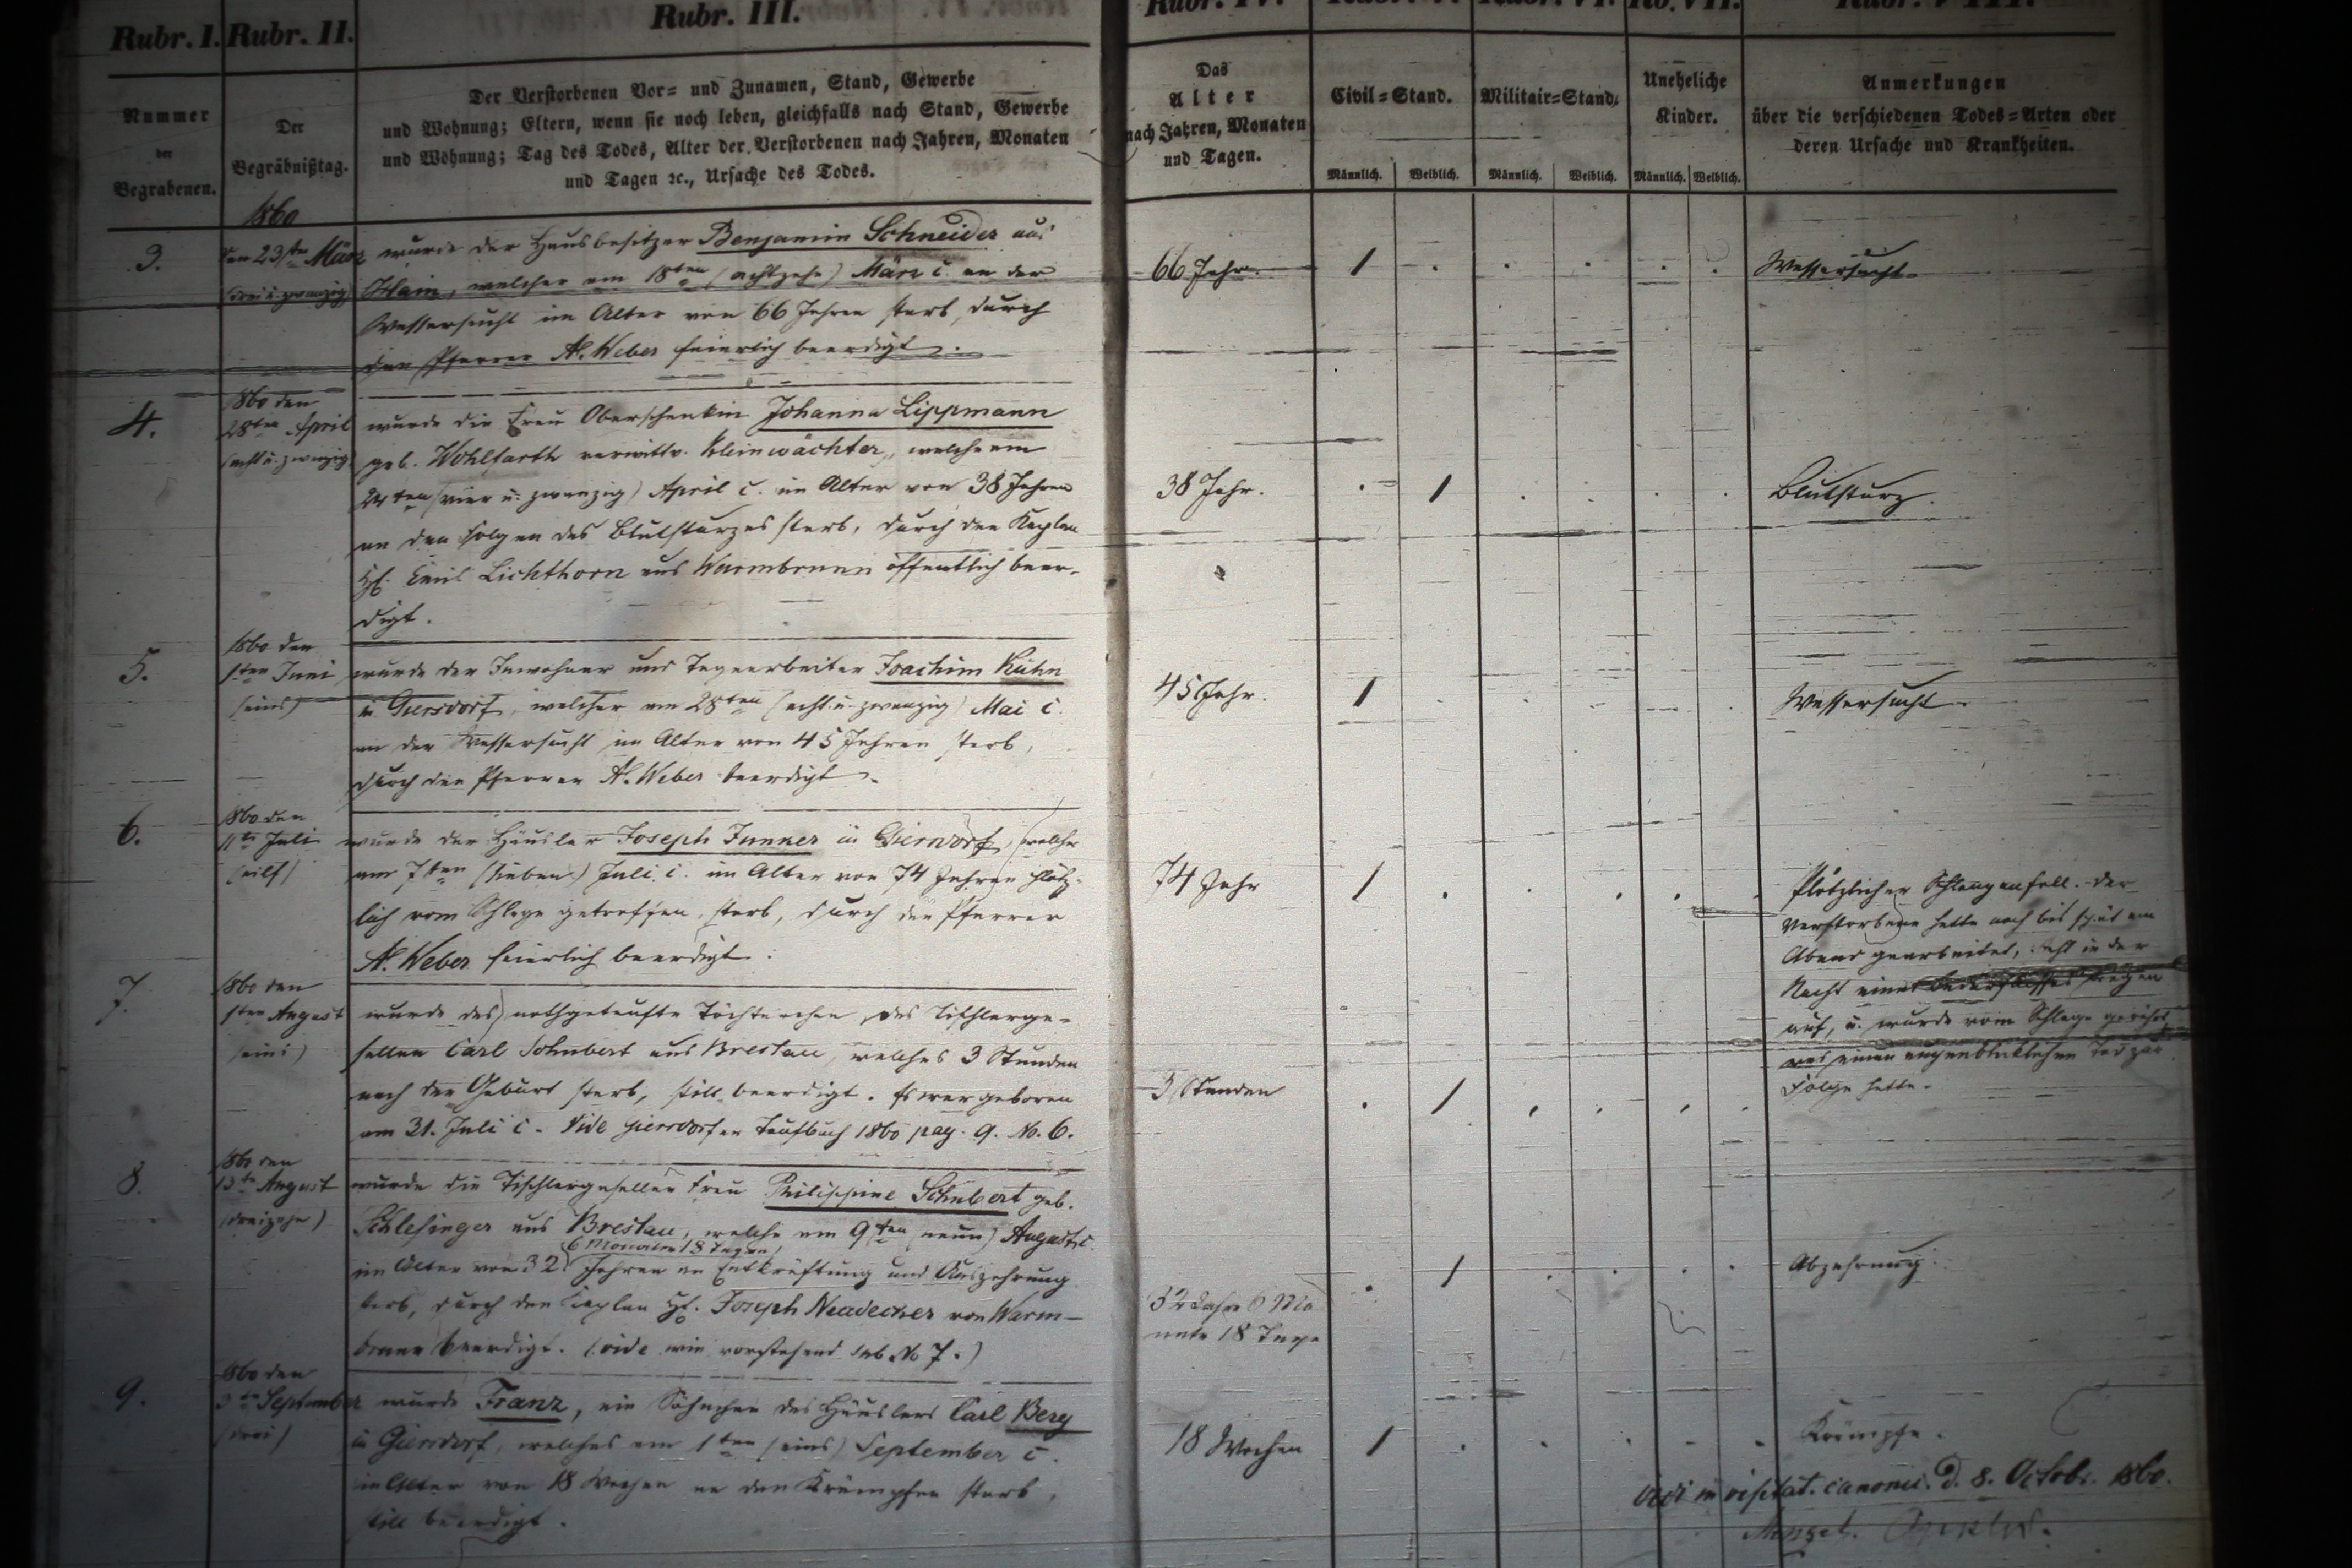 Rubr. I. Rubr. II. Rubr. III.
Nummer
der
Begrabenen.
Der
Begräbnißtag.
Der Verstorbenen Vor= und Zunamen, Stand, Gewerbe
und Wohnung; Eltern, wenn sie noch leben, gleichfalls nach Stand, Gewerbe
und Wohnung; Tag des Todes, Alter der Verstorbenen nach Jahren, Monaten
und Tagen ꝛc., Ursache des Todes.
Rubr. IV. Rubr. V. Rubr. VI. Rb. VII. Rubr. VIII.
Das
Alter
nach Jahren, Monaten
und Tagen.
Civil=Stand.
Militair=Stand.
Uneheliche
Kinder.
Anmerkungen
über die verschiedenen Todes=Arten oder
deren Ursache und Krankheiten.
Männlich. Weiblich. Männlich. Weiblich. Männlich. Weiblich.
1860
3.
den 23ten März
(drei u. zwanzig)
wurde der Hausbesitzer Benjamin Schneider aus
Hain, welcher am 18ten (achtzehn) März c. an der
Wassersucht im Alter von 66 Jahren starb, durch
den Pfarrer A. Weber feierlich beerdigt.
66 Jahr.
1
Wassersucht.
4.
1860 den
28ten April
(acht u. zwanzig)
wurde die Frau Oberschenkin Johanna Lippmann
geb. Wohlfarth verwittw. Kleinwächter, welche am
24ten (vier u. zwanzig) April c. im Alter von 38 Jahren
an den Folgen des Blutsturzes starb, durch den Kaplan
H. Emil Lichthorn aus Warmbrunn öffentlich beer-
digt.
38 Jahr.
1
Blutsturz.
5.
1860 den
1ten Juni
(eins)
wurde der Inwohner und Tagearbeiter Joachim Kühn
in Giersdorf, welcher am 28ten (acht u. zwanzig) Mai c.
an der Wassersucht im Alter von 45 Jahren starb,
durch den Pfarrer A. Weber beerdigt.
45 Jahr.
1
Wassersucht.
6.
1860 den
11te Juli
(eilf)
wurde der Häusler Joseph Junker in Giersdorf, welcher
am 7ten (sieben) Juli c. im Alter von 74 Jahren plötz-
lich vom Schlage getroffen, starb, durch den Pfarrer
A. Weber feierlich beerdigt.
74 Jahr
1
Plötzlicher Schlaganfall. Der
Verstorbene hatte noch bis spät am
Abend gearbeitet, in der
Nacht
auf, u. wurde vom Schlage gerührt
was einen augenblicklichen Tod zur
Folge hatte.
7.
1860 den
1ten August
(eins)
wurde das nothgetaufte Töchterchen des Tischlerge-
sellen Carl Schubert aus Breslau, welches 3 Stunden
nach der Geburt starb, still beerdigt. Es war geboren
am 31. Juli c. Vide Giersdorfer Taufbuch 1860 pag. 9. No. 6.
3 Stunden
1
8.
1860 den
13te August
(dreizehn)
wurde die Tischlergesellen Frau Philippine Schubert geb.
Schlesinger aus Breslau, welche am 9ten (neun) August c.
6 Monaten 18 Tagen
im Alter von 32 Jahren an Entkräftung und Auszehrung
starb, durch den Kaplan H. Joseph Neudecker von Warm-
brunn beerdigt. (vide wie vorstehend sub No 7.)
32 Jahre 6 Mo
nate 18 Tage
1
Abzehrung.
9.
1860 den
3te September
(drei)
wurde Franz, ein Söhnchen des Häuslers Carl Berg
in Giersdorf, welches am 1ten (eins) September c.
im Alter von 18 Wochen an den Krämpfen starb,
still beerdigt.
18 Wochen
1
Krämpfe.
Vidi in visitat. canonic. d. 8. Octobr. 1860.